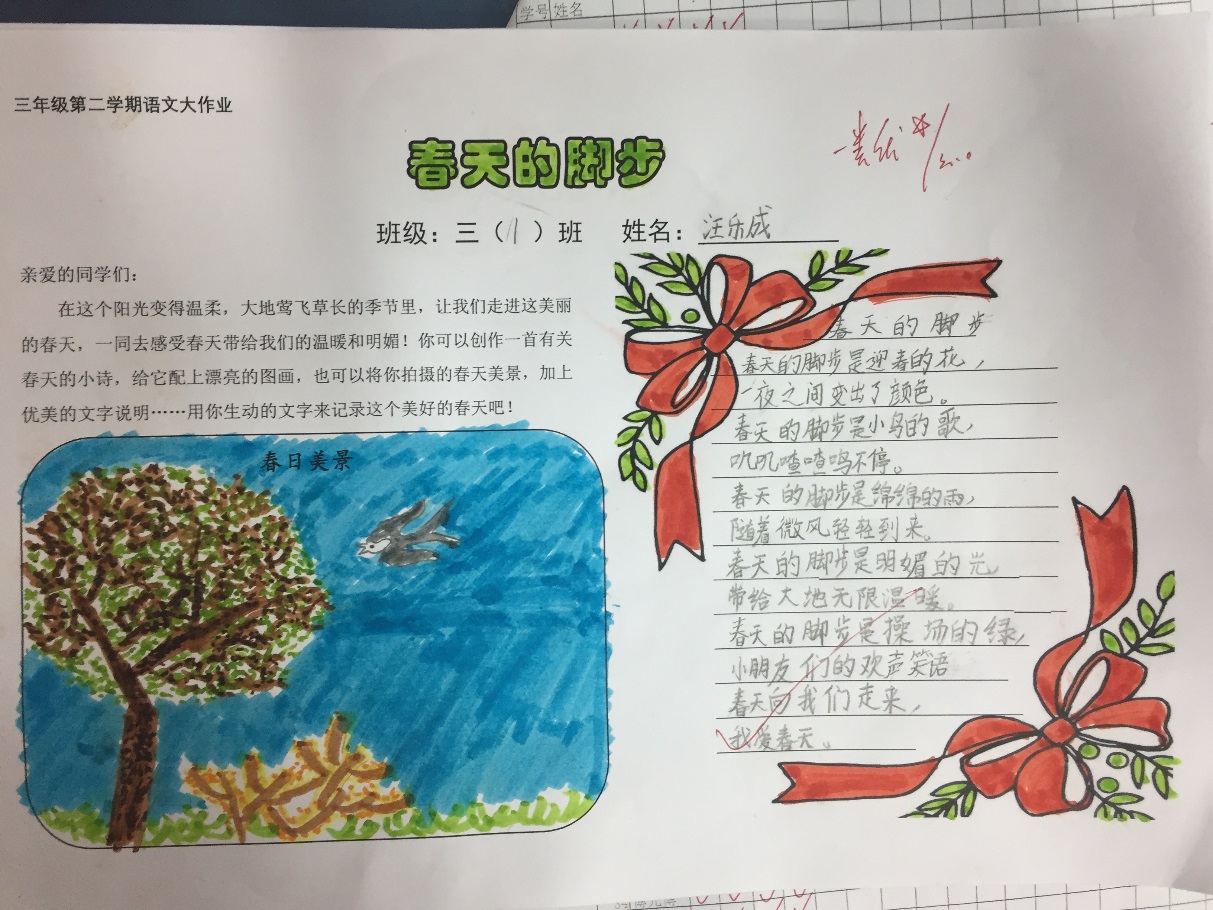 学号 姓名
三年级第二学期语文大作业
春天的脚步
班级：三（11）班 姓名：汪乐成
亲爱的同学们：
在这个阳光变得温柔，大地莺飞草长的季节里，让我们走进这美丽
的春天，一同去感受春天带给我们的温暖和明媚！你可以创作一首有关
春天的小诗，给它配上漂亮的图画，也可以将你拍摄的春天美景，加上
优美的文字说明……用你生动的文字来记录这个美好的春天吧！
春日美景
春天的脚步
春天的脚步是迎春的花，
一夜之间变出了颜色。
春天的脚步是小鸟的歌，
叽叽喳喳鸣不停。
春天的脚步是绵绵的雨，
随着微风轻轻到来。
春天的脚步是明媚的光，
带给大地无限温暖。
春天的脚步是操场的绿，
小朋友们的欢声笑语
春天向我们走来，
我爱春天。